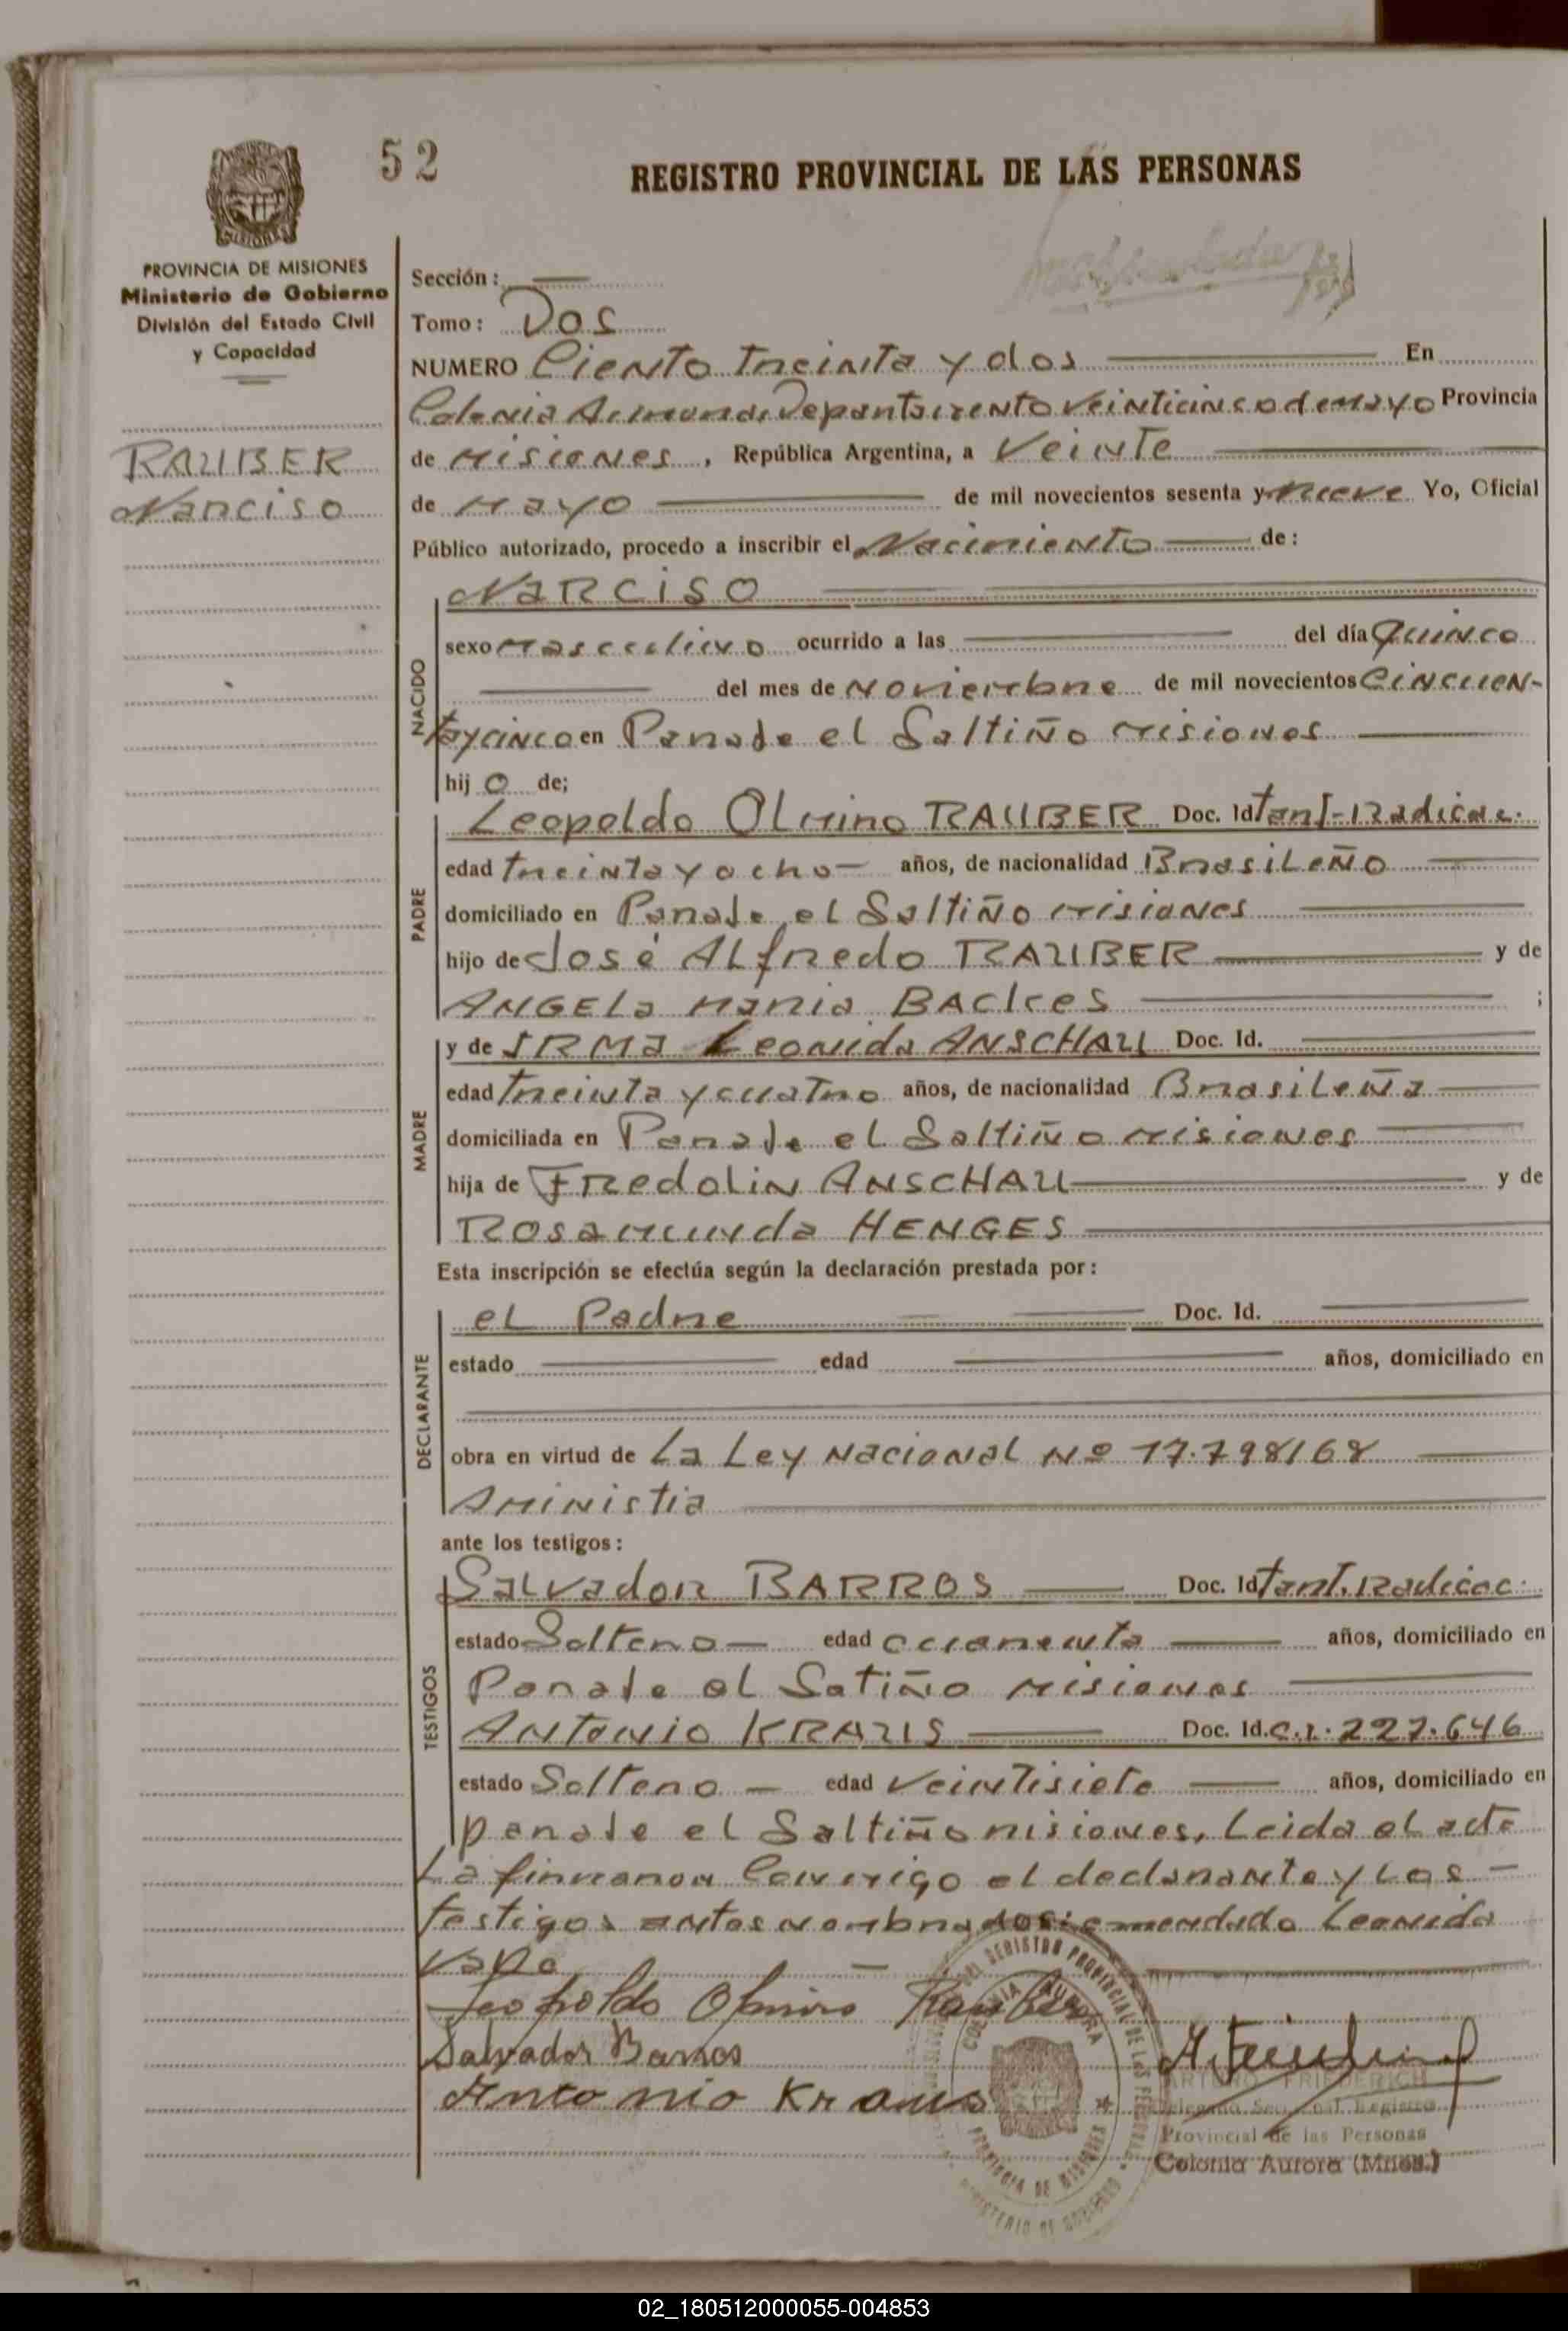 52
REGISTRO PROVINCIAL DE LAS PERSONAS
PROVINCIA DE MISIONES
Ministerio de Gobierno
División del Estado Civil
y Capacidad
RAUBER
Narciso
Sección:
Tomo: Dos
NUMERO Ciento treinta y dos En
Colonia Aurora Departamento Veinticinco de Mayo Provincia
de Misiones, República Argentina, a Veinte
de Mayo de mil novecientos sesenta y nueve Yo, Oficial
Público autorizado, procedo a inscribir el Nacimiento de:
NACIDO
NARCISO
sexo Masculino ocurrido a las del día Quince
del mes de Noviembre de mil novecientos Cincuen-
tay cinco en Parada el Saltiño Misiones
hijo de;
PADRE
Leopoldo Olmiro RAUBER Doc. Id
edad treinta y ocho años, de nacionalidad Brasileño
domiciliado en Parada el Saltiño Misiones
hijo de José Alfredo RAUBER y de
ANGELa Maria BACkes ;
MADRE
y de IRMa Leonida ANSCHAU Doc. Id.
edad treinta y cuatro años, de nacionalidad Brasileña
domiciliada en Parada el Saltiño Misiones
hija de FRedoliN ANSCHAU y de
Rosamunda HENGES
Esta inscripción se efectúa según la declaración prestada por:
DECLARANTE
el Padre Doc. Id.
estado edad años, domiciliado en
obra en virtud de La Ley Nacional Nº 17.798/68
Aministia
ante los testigos:
TESTIGOS
Salvador BARROS Doc. Id
estado Soltero edad cuarenta años, domiciliado en
Parada el Satiño Misiones
ANtoNio KRAUS Doc. Id. C.I. 227.646
estado Soltero edad Veintisiete años, domiciliado en
parada el Saltiño Misiones, Leida el acta
La firmaron Conmigo el declarante y Los
testigos antes nombrados: enmendado Leonida
Vale
Leopoldo Olmiro Rauber
Salvador Barros
Antonio Kraus
DEL REGISTRO PROVINCIAL DE LAS PERSONAS
COLONIA AURORA
PROVINCIA DE MISIONES
MINISTERIO DE GOBIERNO
ARTURO FRIEDERICH
Delegado Seccional Registro
Provincial de las Personas
Colonia Aurora (Mnes.)
02_180512000055-004853